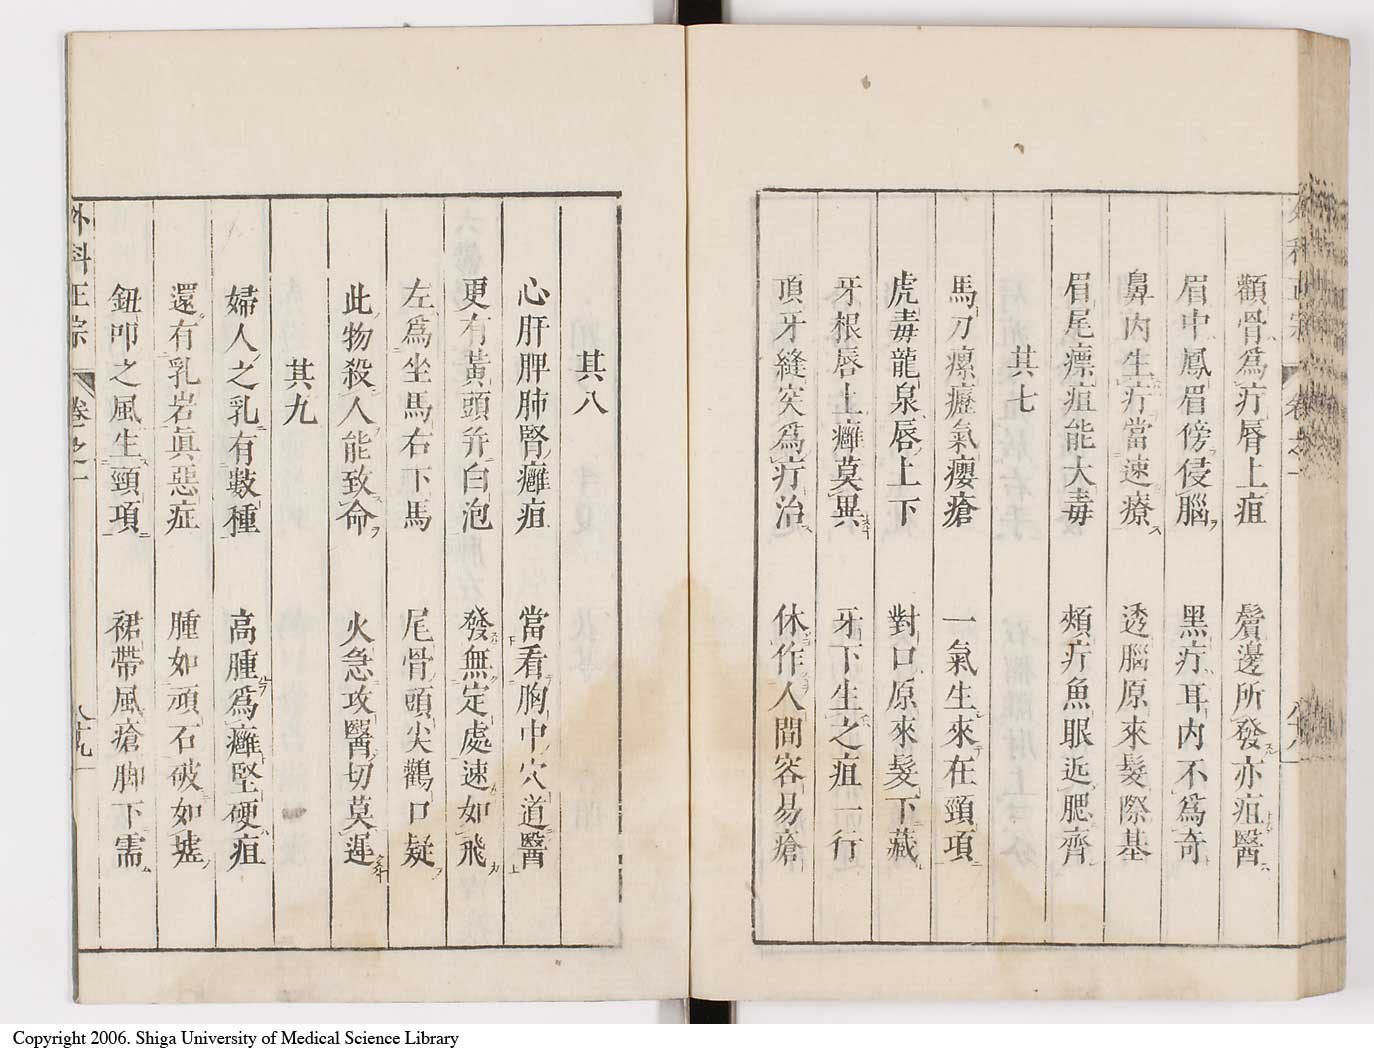 顴骨爲疔唇上疽　鬢邊所發亦疽醫
眉中鳳眉傍侵腦　黑疔耳內不爲奇
鼻內生疔當速療　透腦原來髮際基
眉尾瘭疽能大毒　頰疔魚眼近肥齊
其七
馬刀瘰癧氣癭瘡　一氣生來在頸項
虎毒龍泉唇上下　對口原來髮下藏
牙根唇上癰莫異　牙下生之疽一行
頂牙縫突爲疔治　休作人間容易瘡
其八
心肝脾肺腎癰疽　當看胸中穴道醫
更有黃頭并白泡　發無定處速如飛
左爲坐馬右下馬　尾骨頭尖鸛口疑
此物殺人能致命　火急攻醫切莫遲
其九
婦人之乳有數種　高腫爲癰堅硬疽
還有乳岩眞惡症　腫如頑石破如墟
鈕叩之風生頸項　裙帶風瘡脚下需
外科正宗　卷之一
Copyright 2006. Shiga University of Medical Science Library